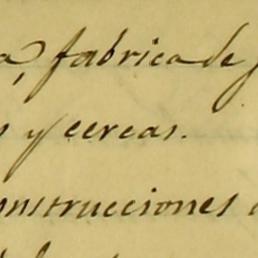 a, fabrica de
s y cercas.
onstrucciones